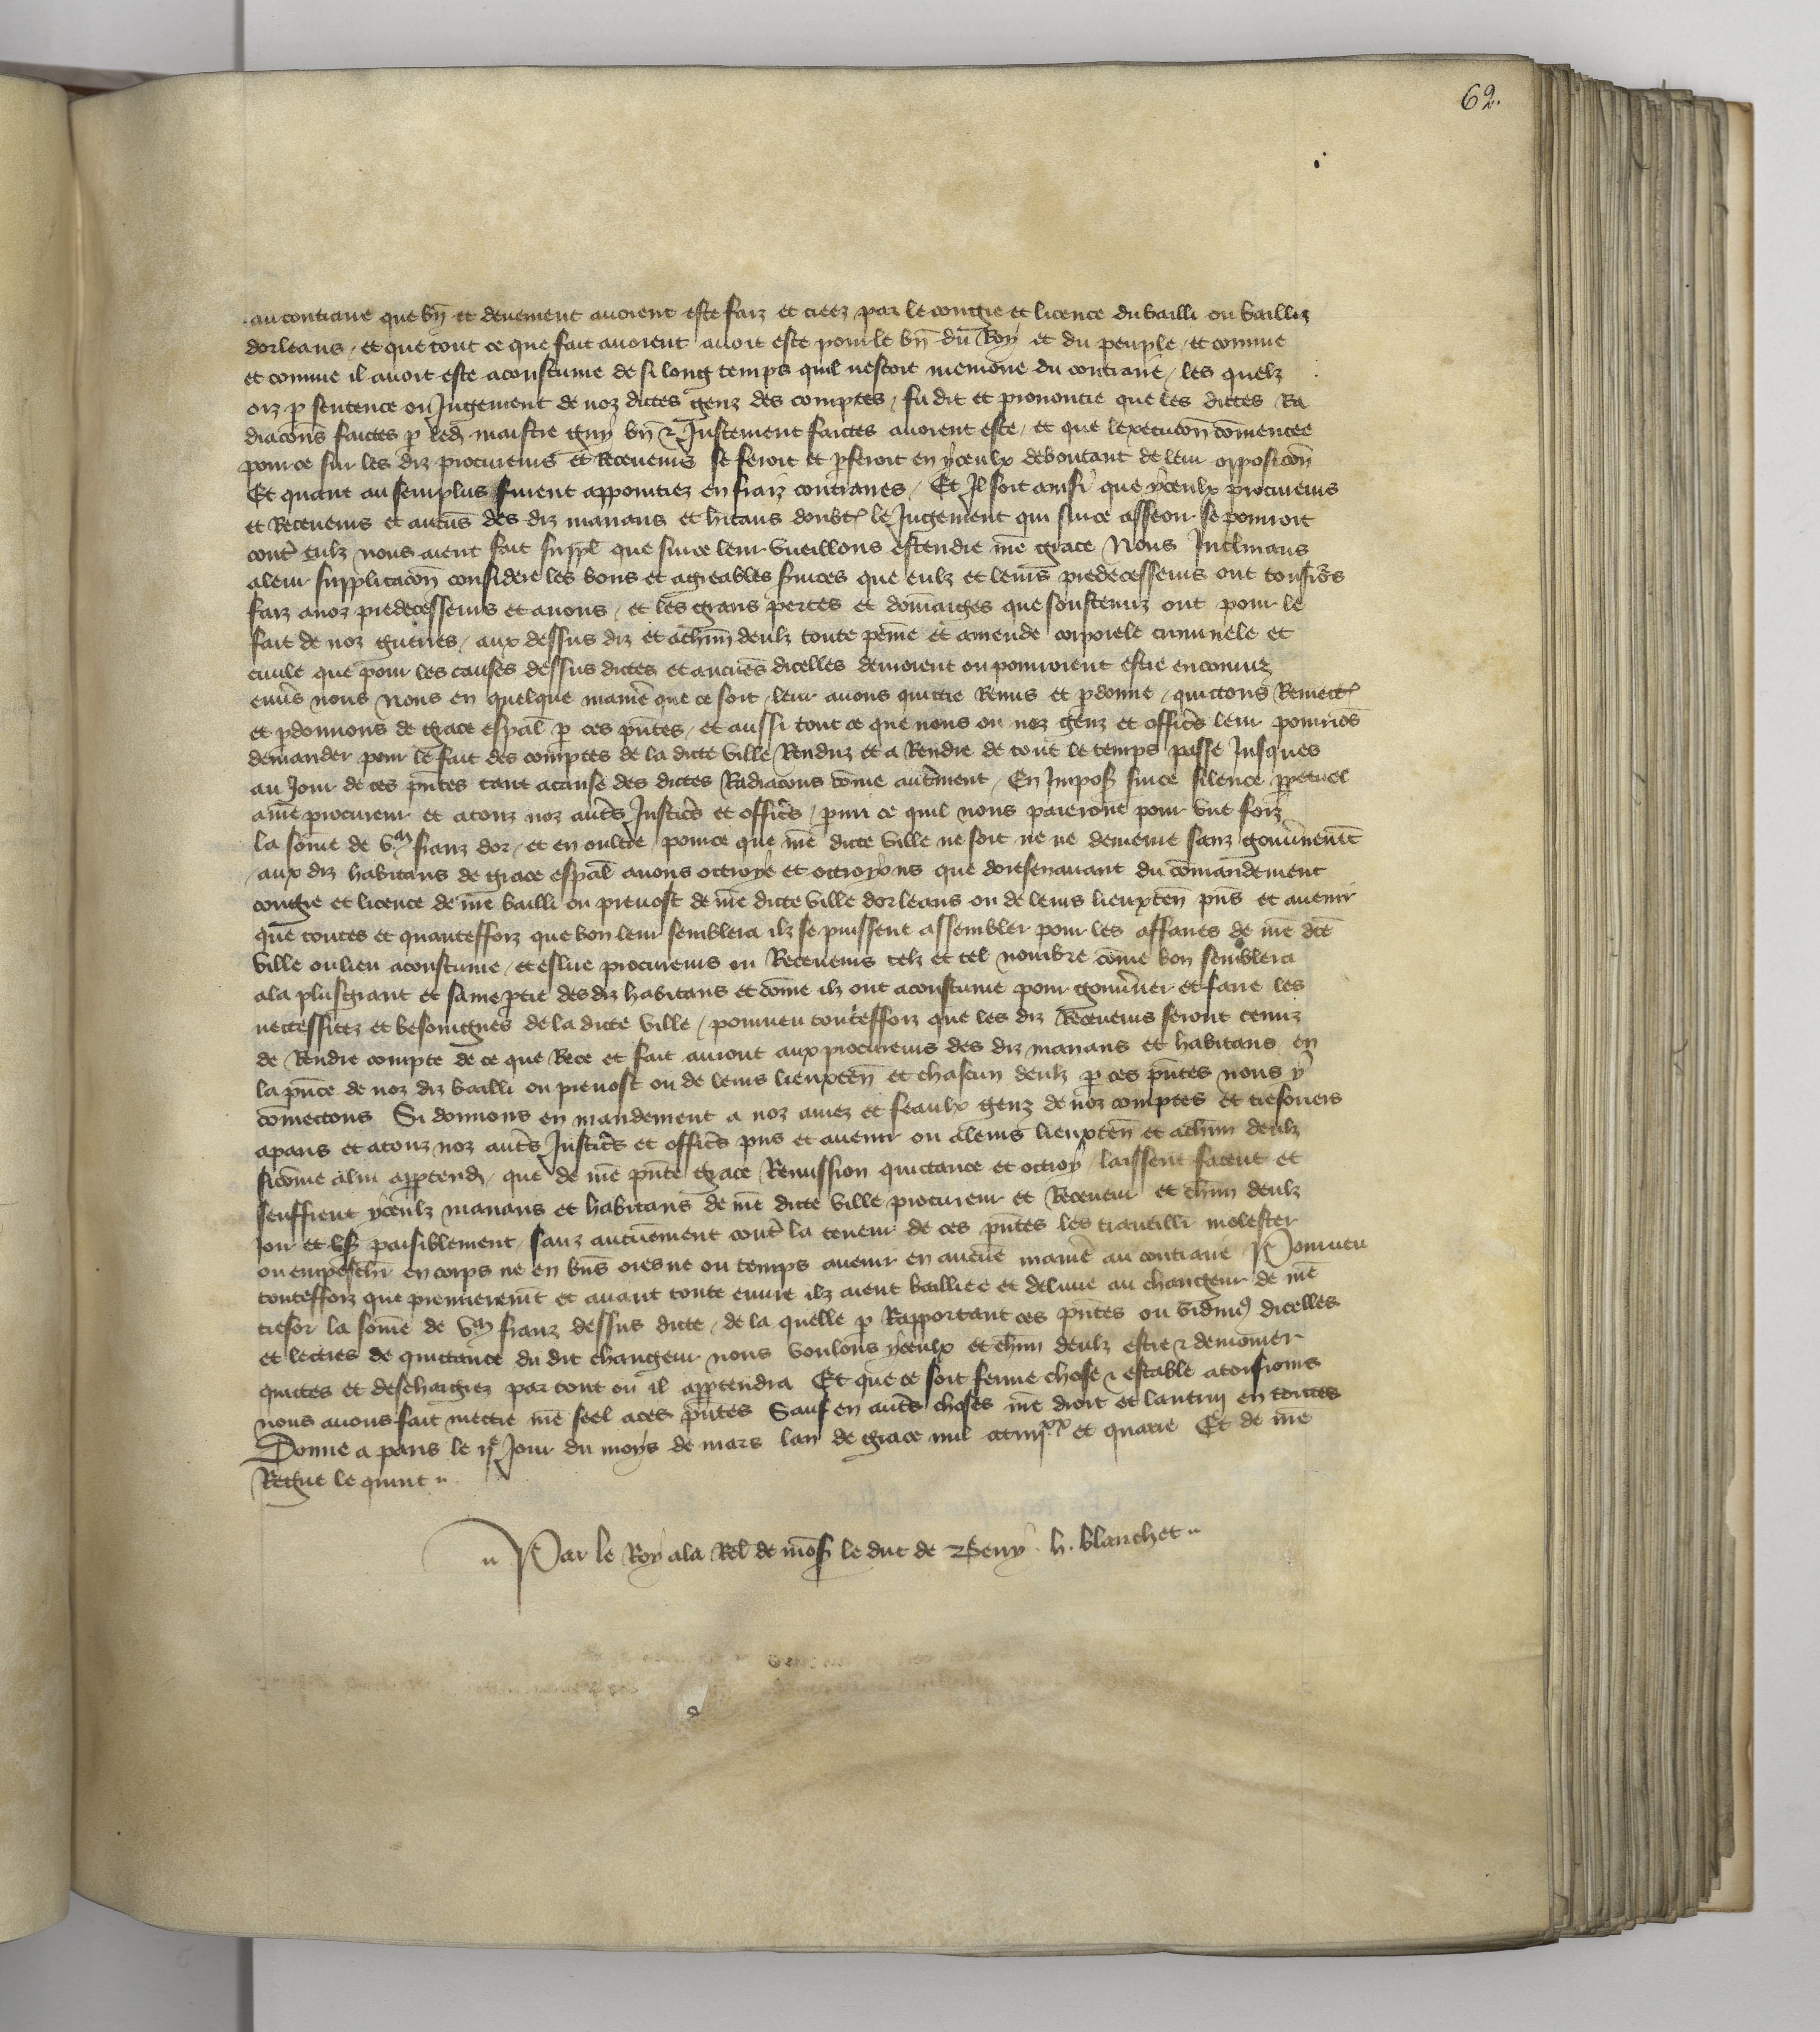 62.
au contraire que bn̄ et deuement auoient este faiz et creez par le congie et licence du bailli ou bailliz
dorleans / et que tout ce que fait auoient auoit este pour le bn̄ du Roy et du peuple / et comme
et comme il auoit este acoustume de si long temps quil nestoit memoire du contraire / les quelz
oiz ꝑ sentence ou Jugement de noz dictes genz des comptes / fu dit et prononcie que les dictes Ra
diacōns faictes ꝑ led maistre Guy bn̄ ⁊ Justement faictes auoient este / et que lexecucōn cōmencee
pour ce sur les diz procureurs et Receueurs se feroit et ꝑferoit en yceulx deboutant de leur opposicōn
Et quant au seurplus furent appointiez en faiz contraires / Et Il soit ainsi que yceulx procureurs
et Receueurs et aucūs des diz manans et h̄itans doubt̄ le Jugement qui sur ce asseoir se pourroit
cont̄ eulz / nous aient fait suppl̄ que sur ce leur vueillons estendre nr̄e grace / Nous Inclinans
a leur supplicacōn considere les bons et agreables seruices que eulz et leurs predecesseurs ont tousiōs
faiz a noz predecesseurs et a nous / et les grans pertes et dōmaiges que soustenuz ont pour le
fait de noz guerres / aux dessus diz et a ch̄un deulz toute peine et amende corporele criminele et
ciuile que pour les causes dessus dictes et aucūes dicelles deuroient ou pourroient estre encouruz
enūs nous Nous en quelque manīe que ce soit / leur auons quictie Remis et ꝑdonne / quictons Remect̄
et ꝑdonnons de grace esp̄al ꝑ ces pn̄tes / et aussi tout ce que nous ou noz genz et officīs leur pourriōs
demander pour le fait des comptes de la dicte ville Renduz et a Rendre de tout le temps passe Jusques
au Jour de ces pn̄tes tant a cause des dictes Radiacōns cōme autrement / En Impos̄ sur ce silence ꝑpetuel
a nr̄e procureur et a touz noz autr̄s Justicīs et officīs / parmi ce quil nous paieront pour vne foiz
la sōme de vᵐ franz dor / et en oultre pour ce que nr̄e dicte ville ne soit ne ne demeure sanz gouūnem̄t
aux diz habitans de grace esp̄al auons octroye et octroyons que doresenauant du cōmandement
congie et licence de nr̄e bailli ou preuost de nr̄e dicte ville dorleans ou de leurs lieuxten̄ pn̄s et auenir
que toutes et quanteffoiz que bon leur semblera ilz se puissent assembler pour les affaires de nr̄e dc̄e
ville ou lieu acoustume / et eslire procureurs ou Receueurs telz et tel nombre cōme bon semblera
a la plusgrant et saine ꝑtie des diz habitans et cōme ilz ont acoustume pour gouūner et faire les
neccessitez et besoingnes de la dicte ville / pourueu touteffoiz que les diz Receueurs seront tenuz
de Rendre compte de ce que Rece et fait auront aux procureurs des diz manans et habitans en
la pn̄ce de noz diz bailli ou preuost ou de leurs lieuxten̄ et chascun deulz ꝑ ces pn̄tes nous y
cōmectons Si donnons en mandement a noz amez et feaulx genz de noz comptes et tresoriers
a paris et a touz noz autr̄s Justicīs et officīs pn̄s et auenir ou a leurs lieuxten̄ et a ch̄un deulz
sicōme a lui apptend̄ / que de nr̄e pn̄te grace Remission quictance et octroy / laissent facent et
seuffrent yceulz manans et habitans de nr̄e dicte ville procureur et Receueur et ch̄un deulz
Joir et vs̄ paisiblement / sanz aucunement cont̄ la teneur de ces pn̄tes les trauaillī molester
ou empeschī en corps ne en bn̄s ores ne ou temps auenir en aucūe manīe au contraire / Pourueu
touteffoiz que premierem̄t et auant toute euure ilz aient bailliee et deliure au changeur de nr̄e
tresor la sōme de vᵐ franz dessus dicte / de la quelle ꝑ Rapportant ces pn̄tes ou vidimꝰ dicelles
et lectres de quictance du dit changeur nous voulons yceulx et ch̄un deulz estre ⁊ demourer
quictes et deschargiez par tout ou il apptendra Et que ce soit ferme chose ⁊ estable a tousiours
nous auons fait mectre nr̄e seel a ces pn̄tes Sauf en autr̄s choses nr̄e droit et lautruy en toutes
Donne a paris le ijᵉ Jour du moys de mars lan de grace mil ccciiijˣˣ et quatre Et de nr̄e
Regne le quint
Par le Roy a la Rel̄ de mōs̄ le duc de Berry . h. blanchet